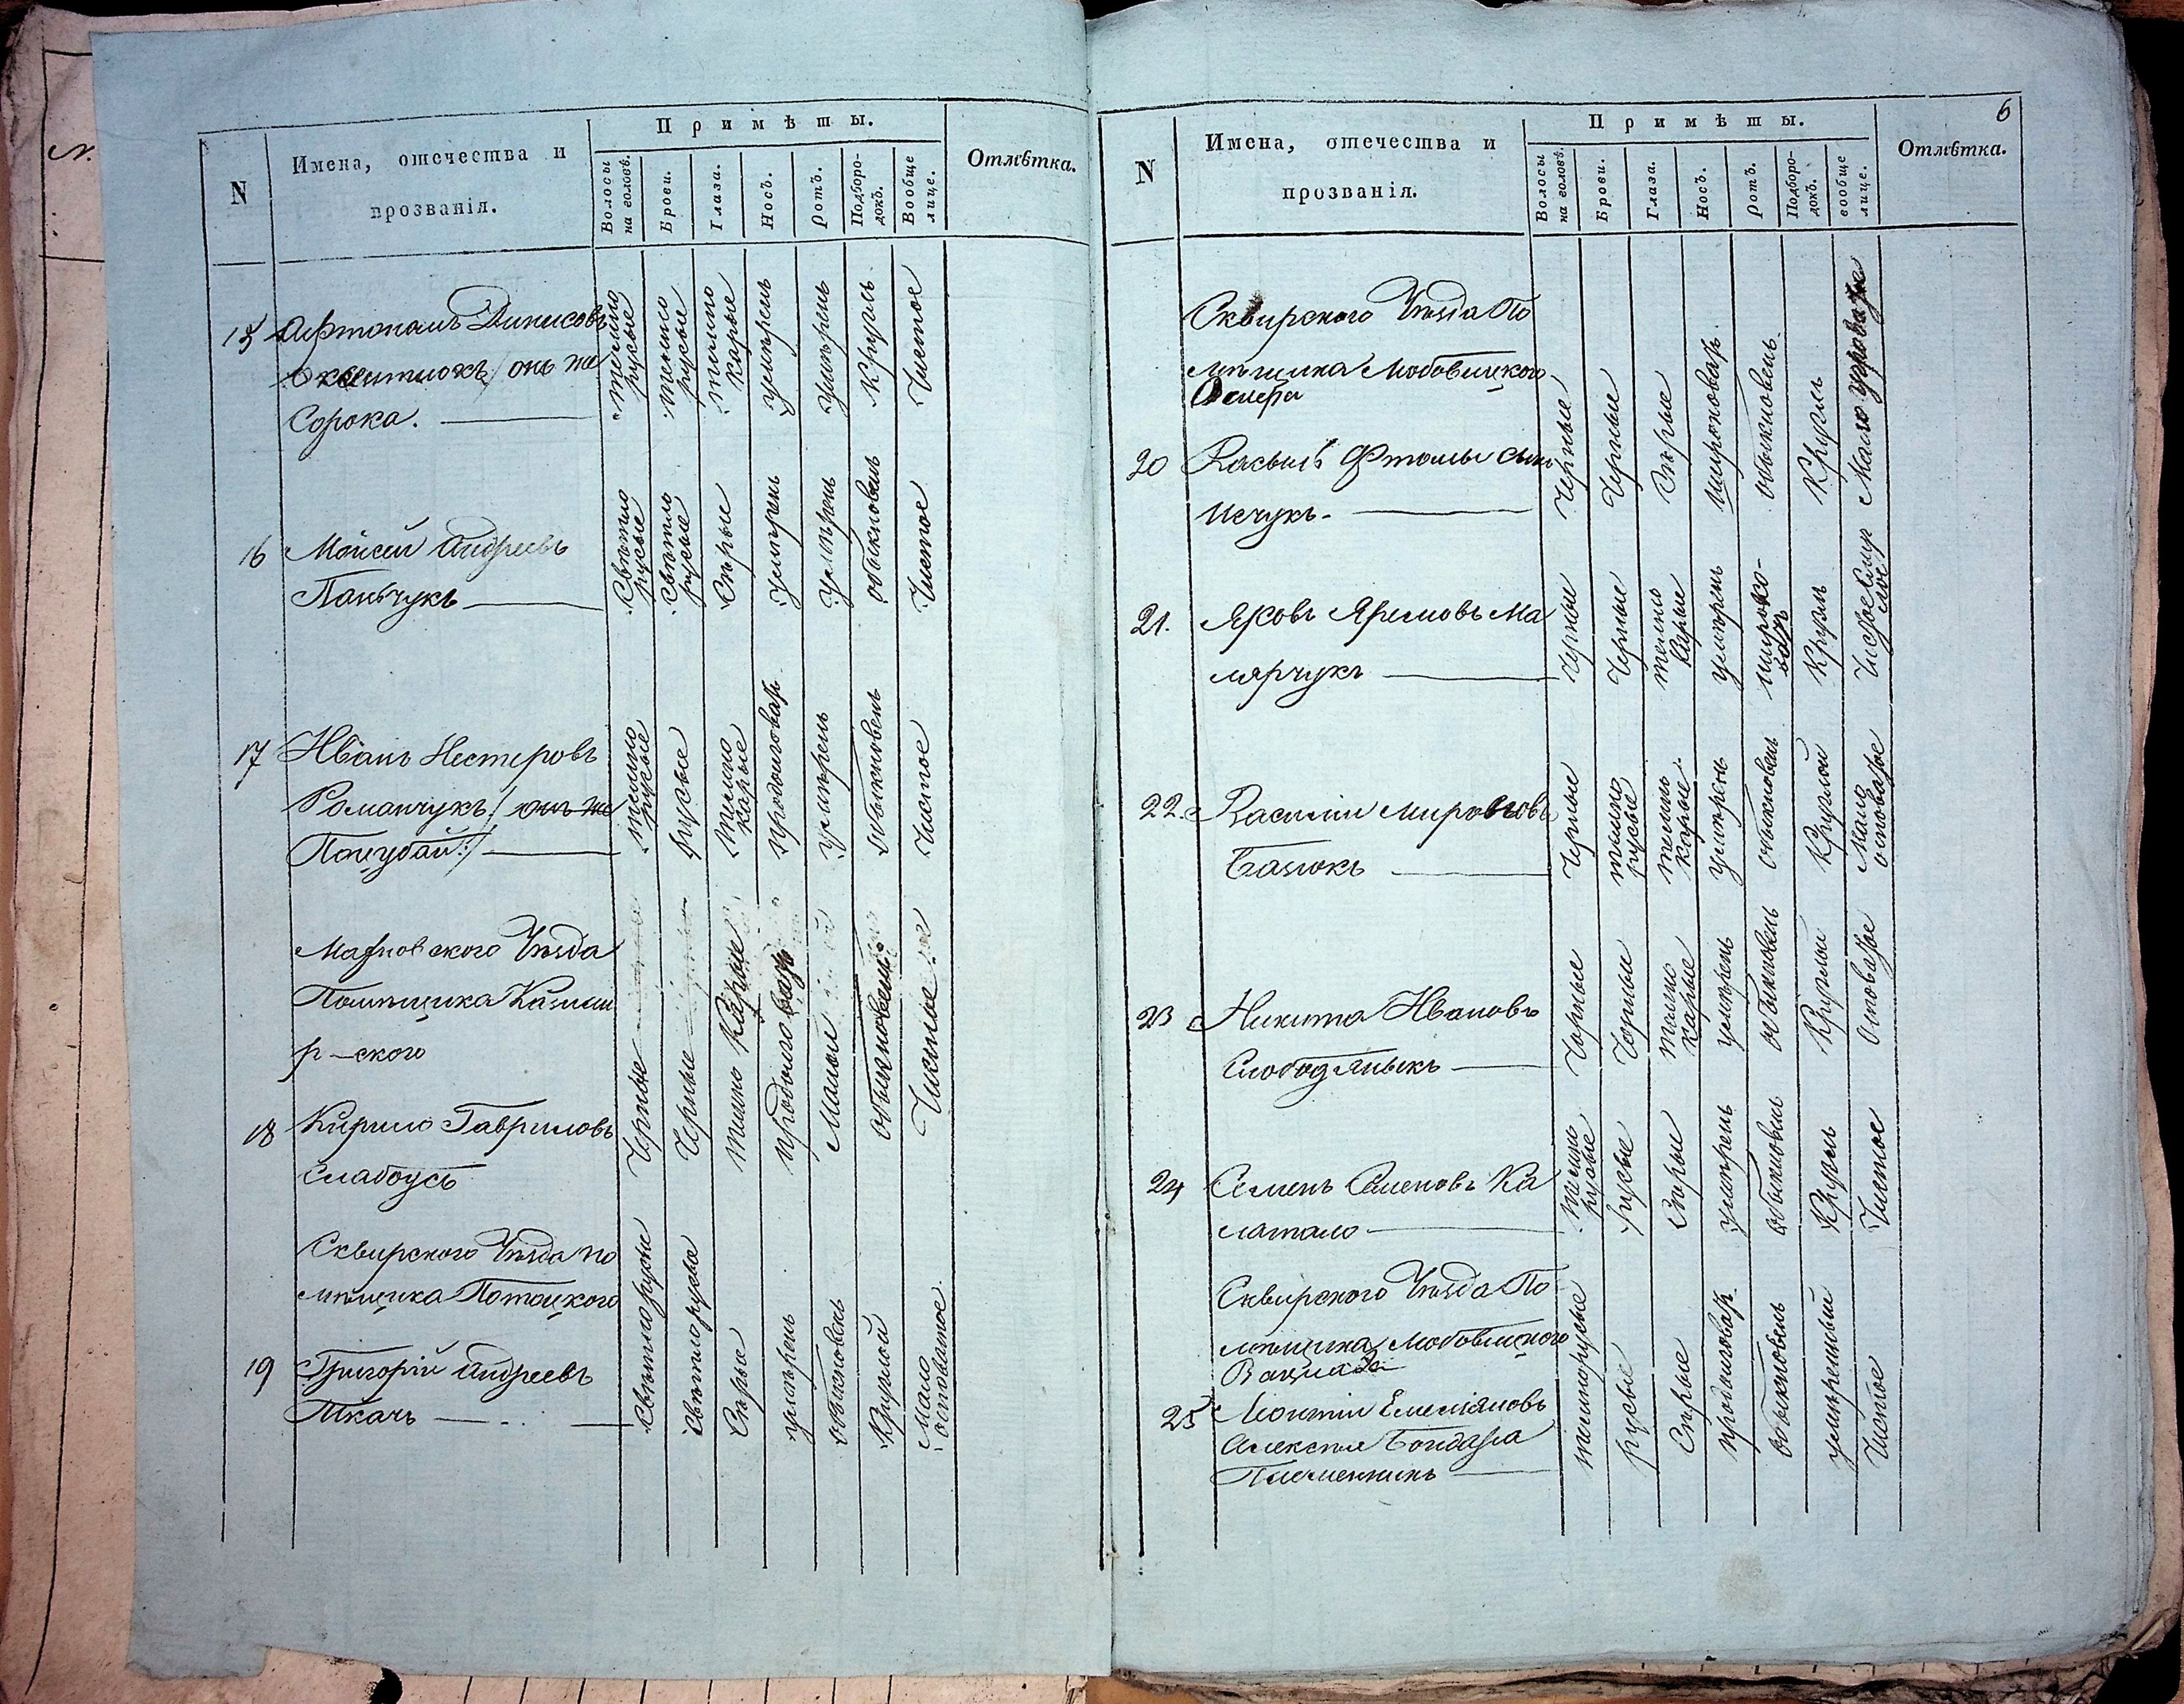 N
Имена, отечества и
прозванія.
Примѣты.
Волосы
на головѣ.
Брови.
Глаза.
Носъ.
Ротъ.
Подборо-
докъ.
Вообще
лице.
Отмѣтка.
15 Денисовъ
онъ же
Сорока.
темно
русые
темно
русые
темно
карые
умѣрень
умѣрень
Кругль
Чистое
16 Мойсей Андреевъ
Паньчукъ
Свѣтло
русые
Свѣтло
русые
Сѣрые
Умѣрень
Умѣрень
обыкновень
Чистое
17 Иванъ Нестеровъ
Романчукъ /: онъ же
Поцубай :/
темно
русые
русые
темно
карые
продолговат
умѣрень
обыкновень
Чистое
Махновского Уѣзда
Помѣщика Казими
р-ского
18 Кирило Гавриловъ
Слабоусъ
Черные
Черные
темно карые
продолговат
Малой
обыкновень
Чистое
Сквирского Уѣзда по
мѣщика Потоцкого
19 Григорій Андреевъ
Ткачъ
Свѣтлорусые
Свѣтлорусые
Сѣрые
умѣрень
обыкновень
Круглой
Мало
осповатое
6
N
Имена, отечества и
прозванія.
Примѣты.
Волосы
на головѣ.
Брови.
Глаза.
Носъ.
Ротъ.
Подборо-
докъ.
вообще
лице.
Отмѣтка.
Сквирского Уѣзда По
мѣщика
20 Василь
Черные
Черные
Сѣрые
Широковат
обыкновень
Кругль
Мало
21. Яковъ Яремовъ Ма
лярчукъ
Черные
Черные
темно
карые
умѣрень
широко-
ват
Кругль
22. Василій
Базюкъ
Черные
темно
русые
темно
карые
умѣрень
обыкновень
Круглой
Мало
осповатое
23 Никита Ивановъ
Слободяныкъ
Чорные
Чорные
темно
карые
умѣрень
обыкновень
Круглой
Осповатое
24 Семенъ Семеновъ Ка
латало
темно
русые
русые
Сѣрые
умѣрень
обыкновень
Кругль
Чистое
Сквирского Уѣзда По-
мѣщика
25 Леонтій Емельяновъ
Алексѣя Бондаря
Племенникъ
темнорусые
русые
Сѣрые
продолговат
обыкновень
умѣренный
Чистое